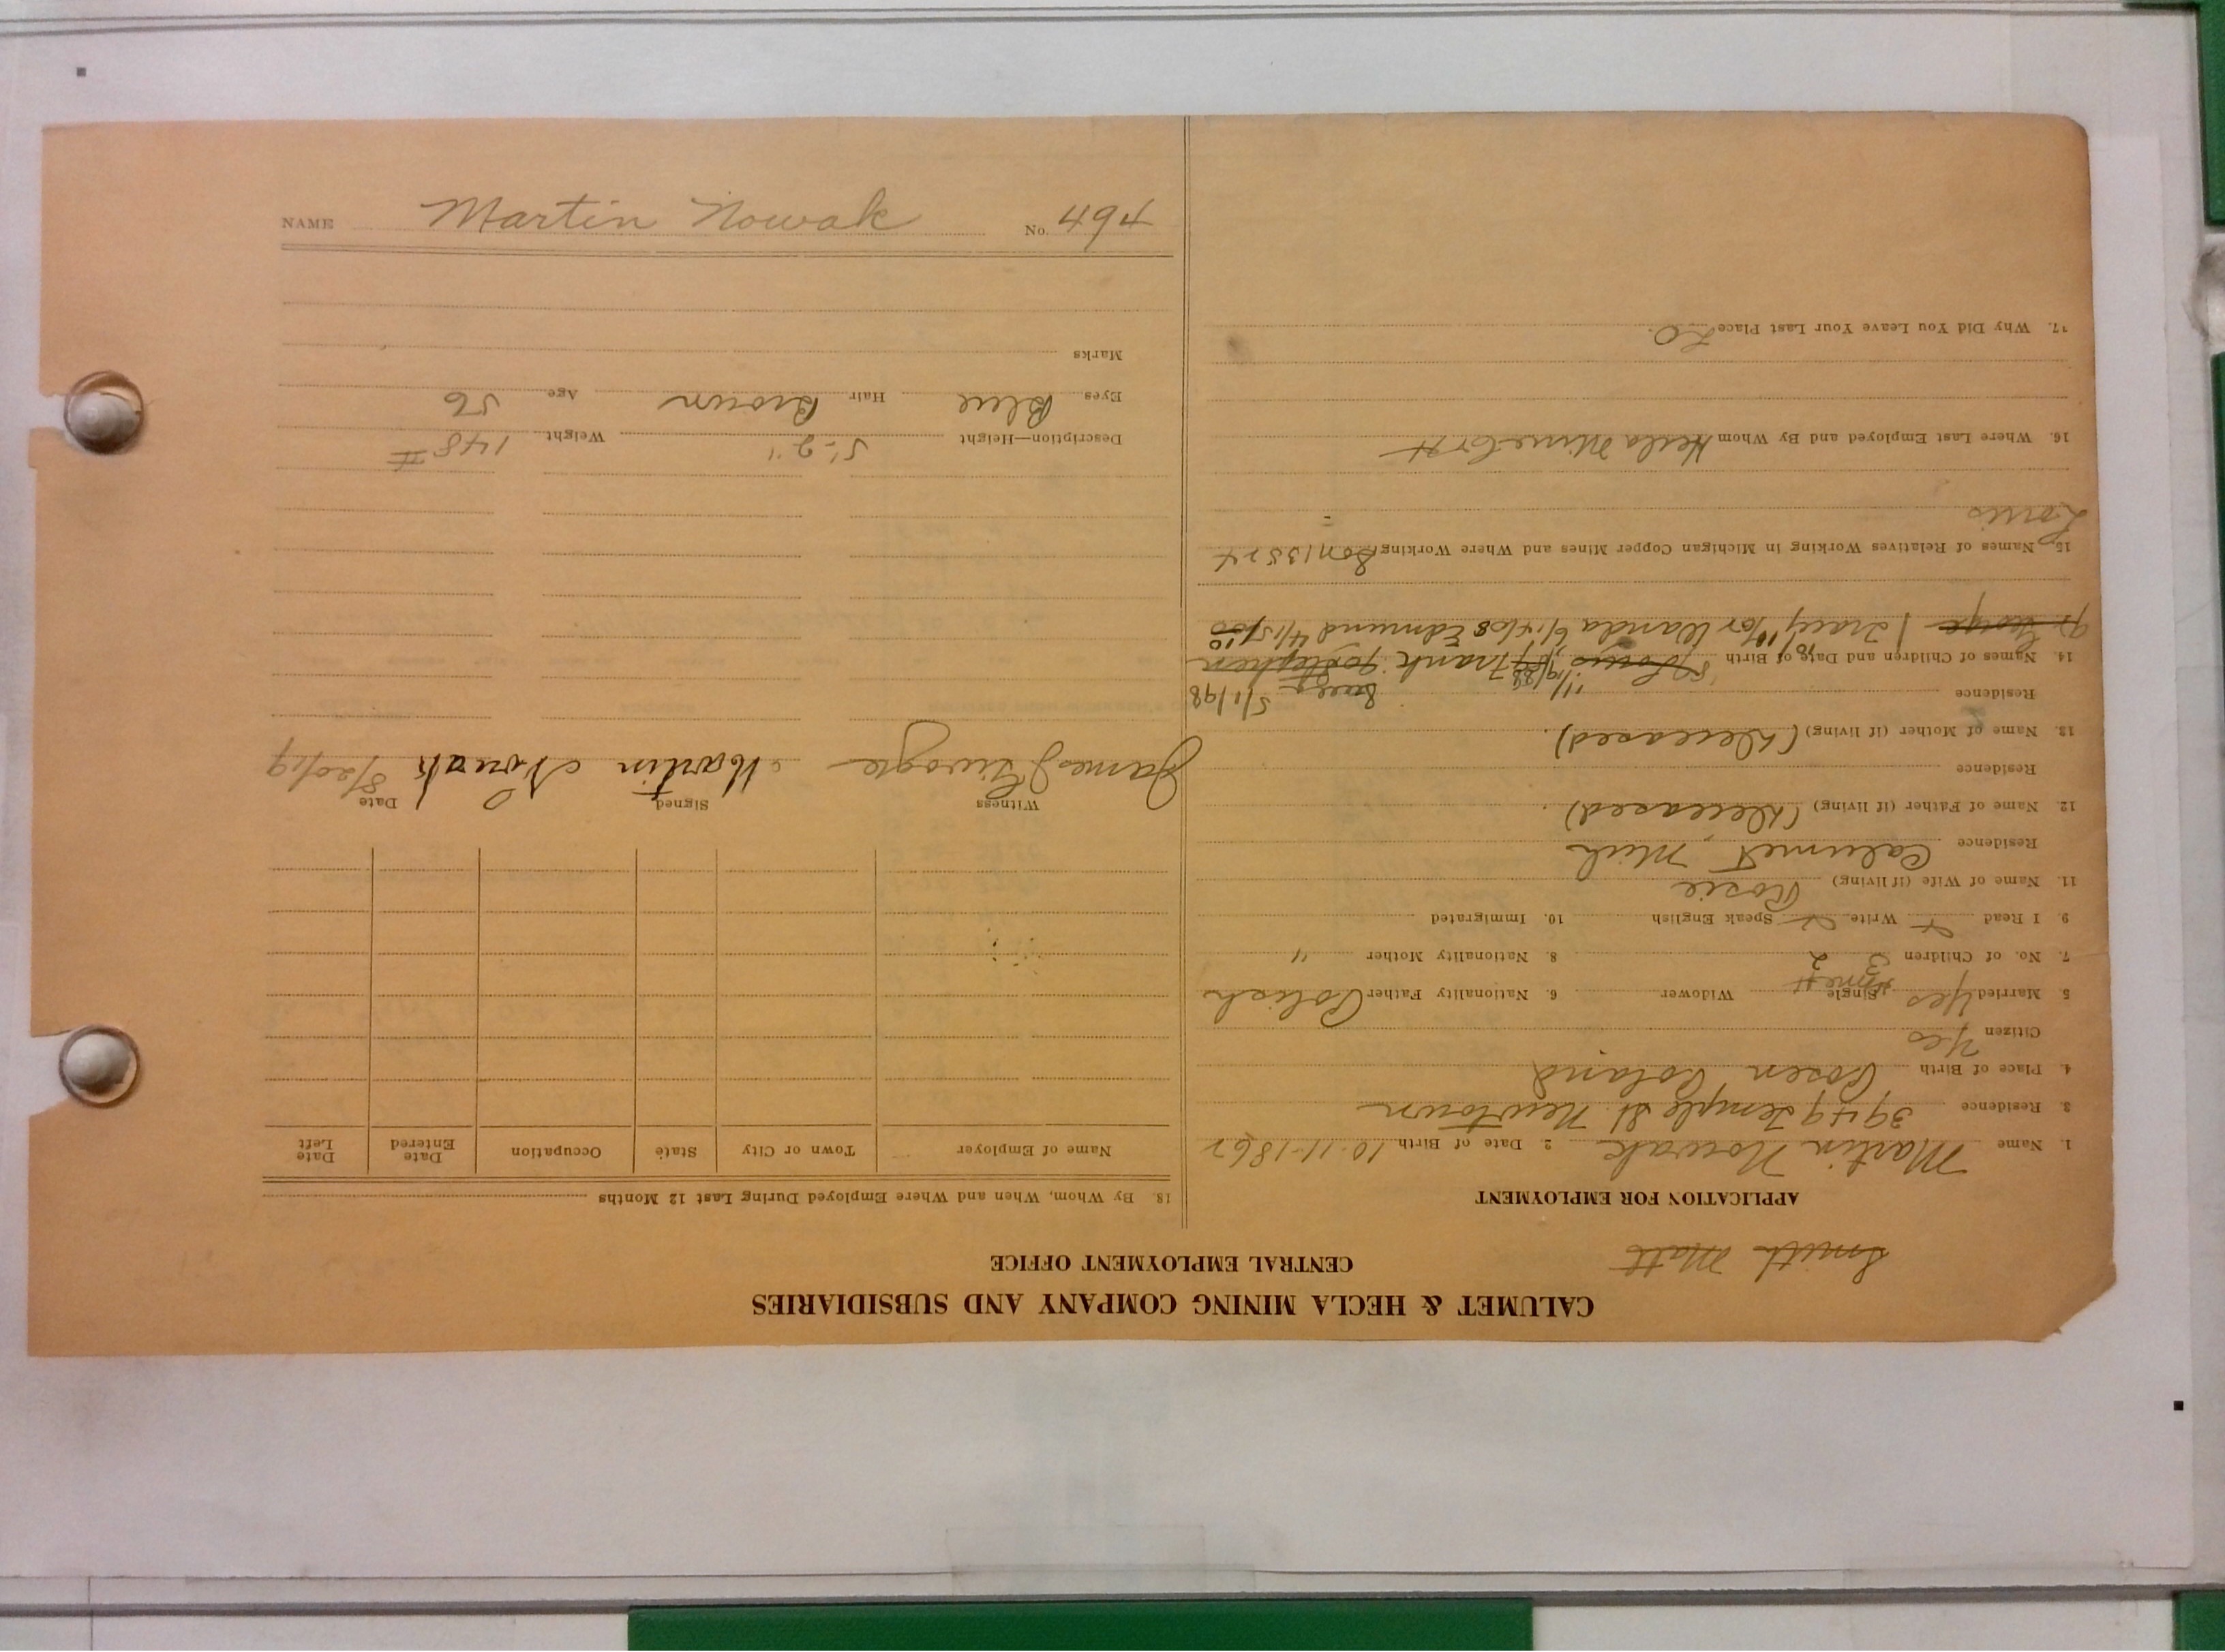 CALUMET & HECLA MINING COMPANY AND SUBSIDIARIES
CENTRAL EMPLOYMENT OFFICE
Smith Matt
APPLICATION FOR EMPLOYMENT
1. Name Martin Nowak 2. Date of Birth 10-11-1862
3. Residence 3949 Temple St. Newtown
4. Place of Birth Posen Poland
Citizen Yes
5. Married Yes Single Widower 6. Nationality Father Polish
7. No. of Children 3 2 8. Nationality Mother "
9. I Read Write Speak English 10. Immigrated
11. Name of Wife (if living) Rosie
Residence Calumet, Mich
12. Name of Father (if living) (Deceased).
Residence
13. Name of Mother (if living) (Deceased).
Residence 5/1/98
14. Names of Children and Date of Birth Louis Frank Stephen
George Wanda 6/14/08 Edmund 4/15/10
15. Names of Relatives Working in Michigan Copper Mines and Where Working Son 13524
Louis
16. Where Last Employed and By Whom Hecla Mine
17. Why Did You Leave Your Last Place L.O.
18. By Whom, When and Where Employed During Last 12 Months
Name of Employer Town or City State Occupation Date Entered Date Left
Witness Signed Date
James Martin Nowak
Description—Height 5'-2" Weight 148 #
Eyes Blue Hair Brown Age 56
Marks
NAME Martin Nowak No. 494